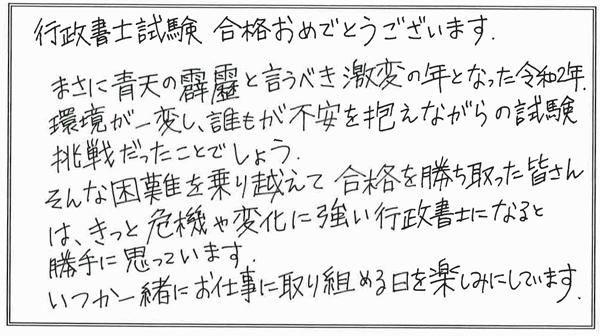 行政書士試験 合格おめでとうございます.
まさに青天の霹靂と言うべき激変の年となった令和2年.
環境が一変し、誰もが不安を抱えながらの試験
挑戦だったことでしょう.
そんな困難を乗り越えて 合格を勝ち取った皆さん
は、きっと危機や変化に強い行政書士になると
勝手に思っています.
いつか一緒にお仕事に取り組める日を楽しみにしています.